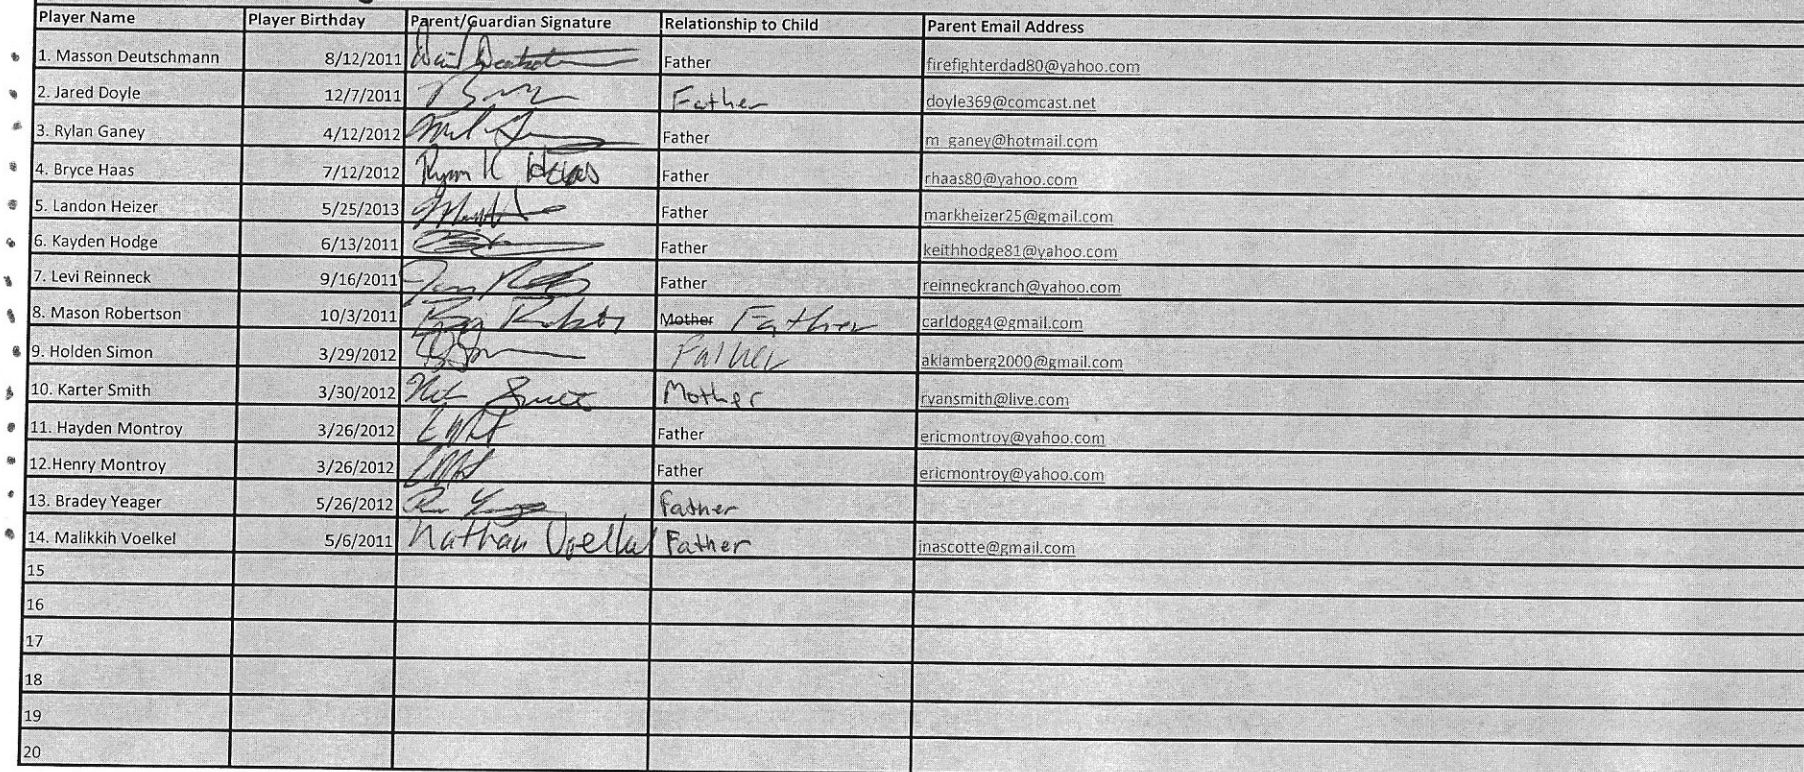 Player Name Player Birthday Parent/Guardian Signature Relationship to Child Parent Email Address
1. Masson Deutschmann 8/12/2011 Father firefighterdad80@yahoo.com
2. Jared Doyle 12/7/2011 Father doyle369@comcast.net
3. Rylan Ganey 4/12/2012 Father m_ganey@hotmail.com
4. Bryce Haas 7/12/2012 Ryan K Haas Father rhaas80@yahoo.com
5. Landon Heizer 5/25/2013 Father markheizer25@gmail.com
6. Kayden Hodge 6/13/2011 Father keithhodge81@yahoo.com
7. Levi Reinneck 9/16/2011 Father reinneckranch@yahoo.com
8. Mason Robertson 10/3/2011 Mother Father carldogg4@gmail.com
9. Holden Simon 3/29/2012 Father aklamberg2000@gmail.com
10. Karter Smith 3/30/2012 Mother ryansmith@live.com
11. Hayden Montroy 3/26/2012 Father ericmontroy@yahoo.com
12.Henry Montroy 3/26/2012 Father ericmontroy@yahoo.com
13. Bradey Yeager 5/26/2012 Father
14. Malikkih Voelkel 5/6/2011 Nathan Voelkel Father jnascotte@gmail.com
15
16
17
18
19
20